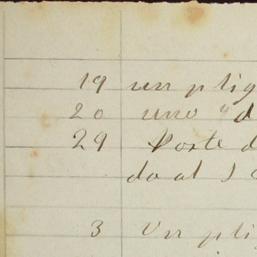 19 un plig
20 uno "d
29 Porte d
do al S
3 Un pli